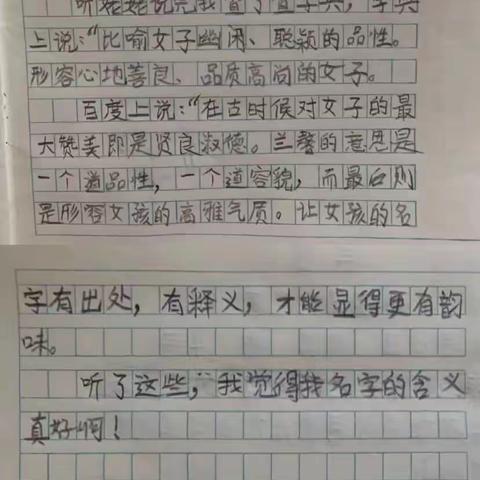 听姥姥说完我查了查字典，字典
上说：“比喻女子幽闲、聪颖的品性。
形容心地善良、品质高尚的女子。
百度上说：“在古时候对女子的最
大赞美即是贤良淑德。兰馨的意思是
一个道品性，一个道容貌，而最后则
是形容女孩的高雅气质。让女孩的名
字有出处，有释义，才能显得更有韵
味。
听了这些，我觉得我名字的含义
真好啊！